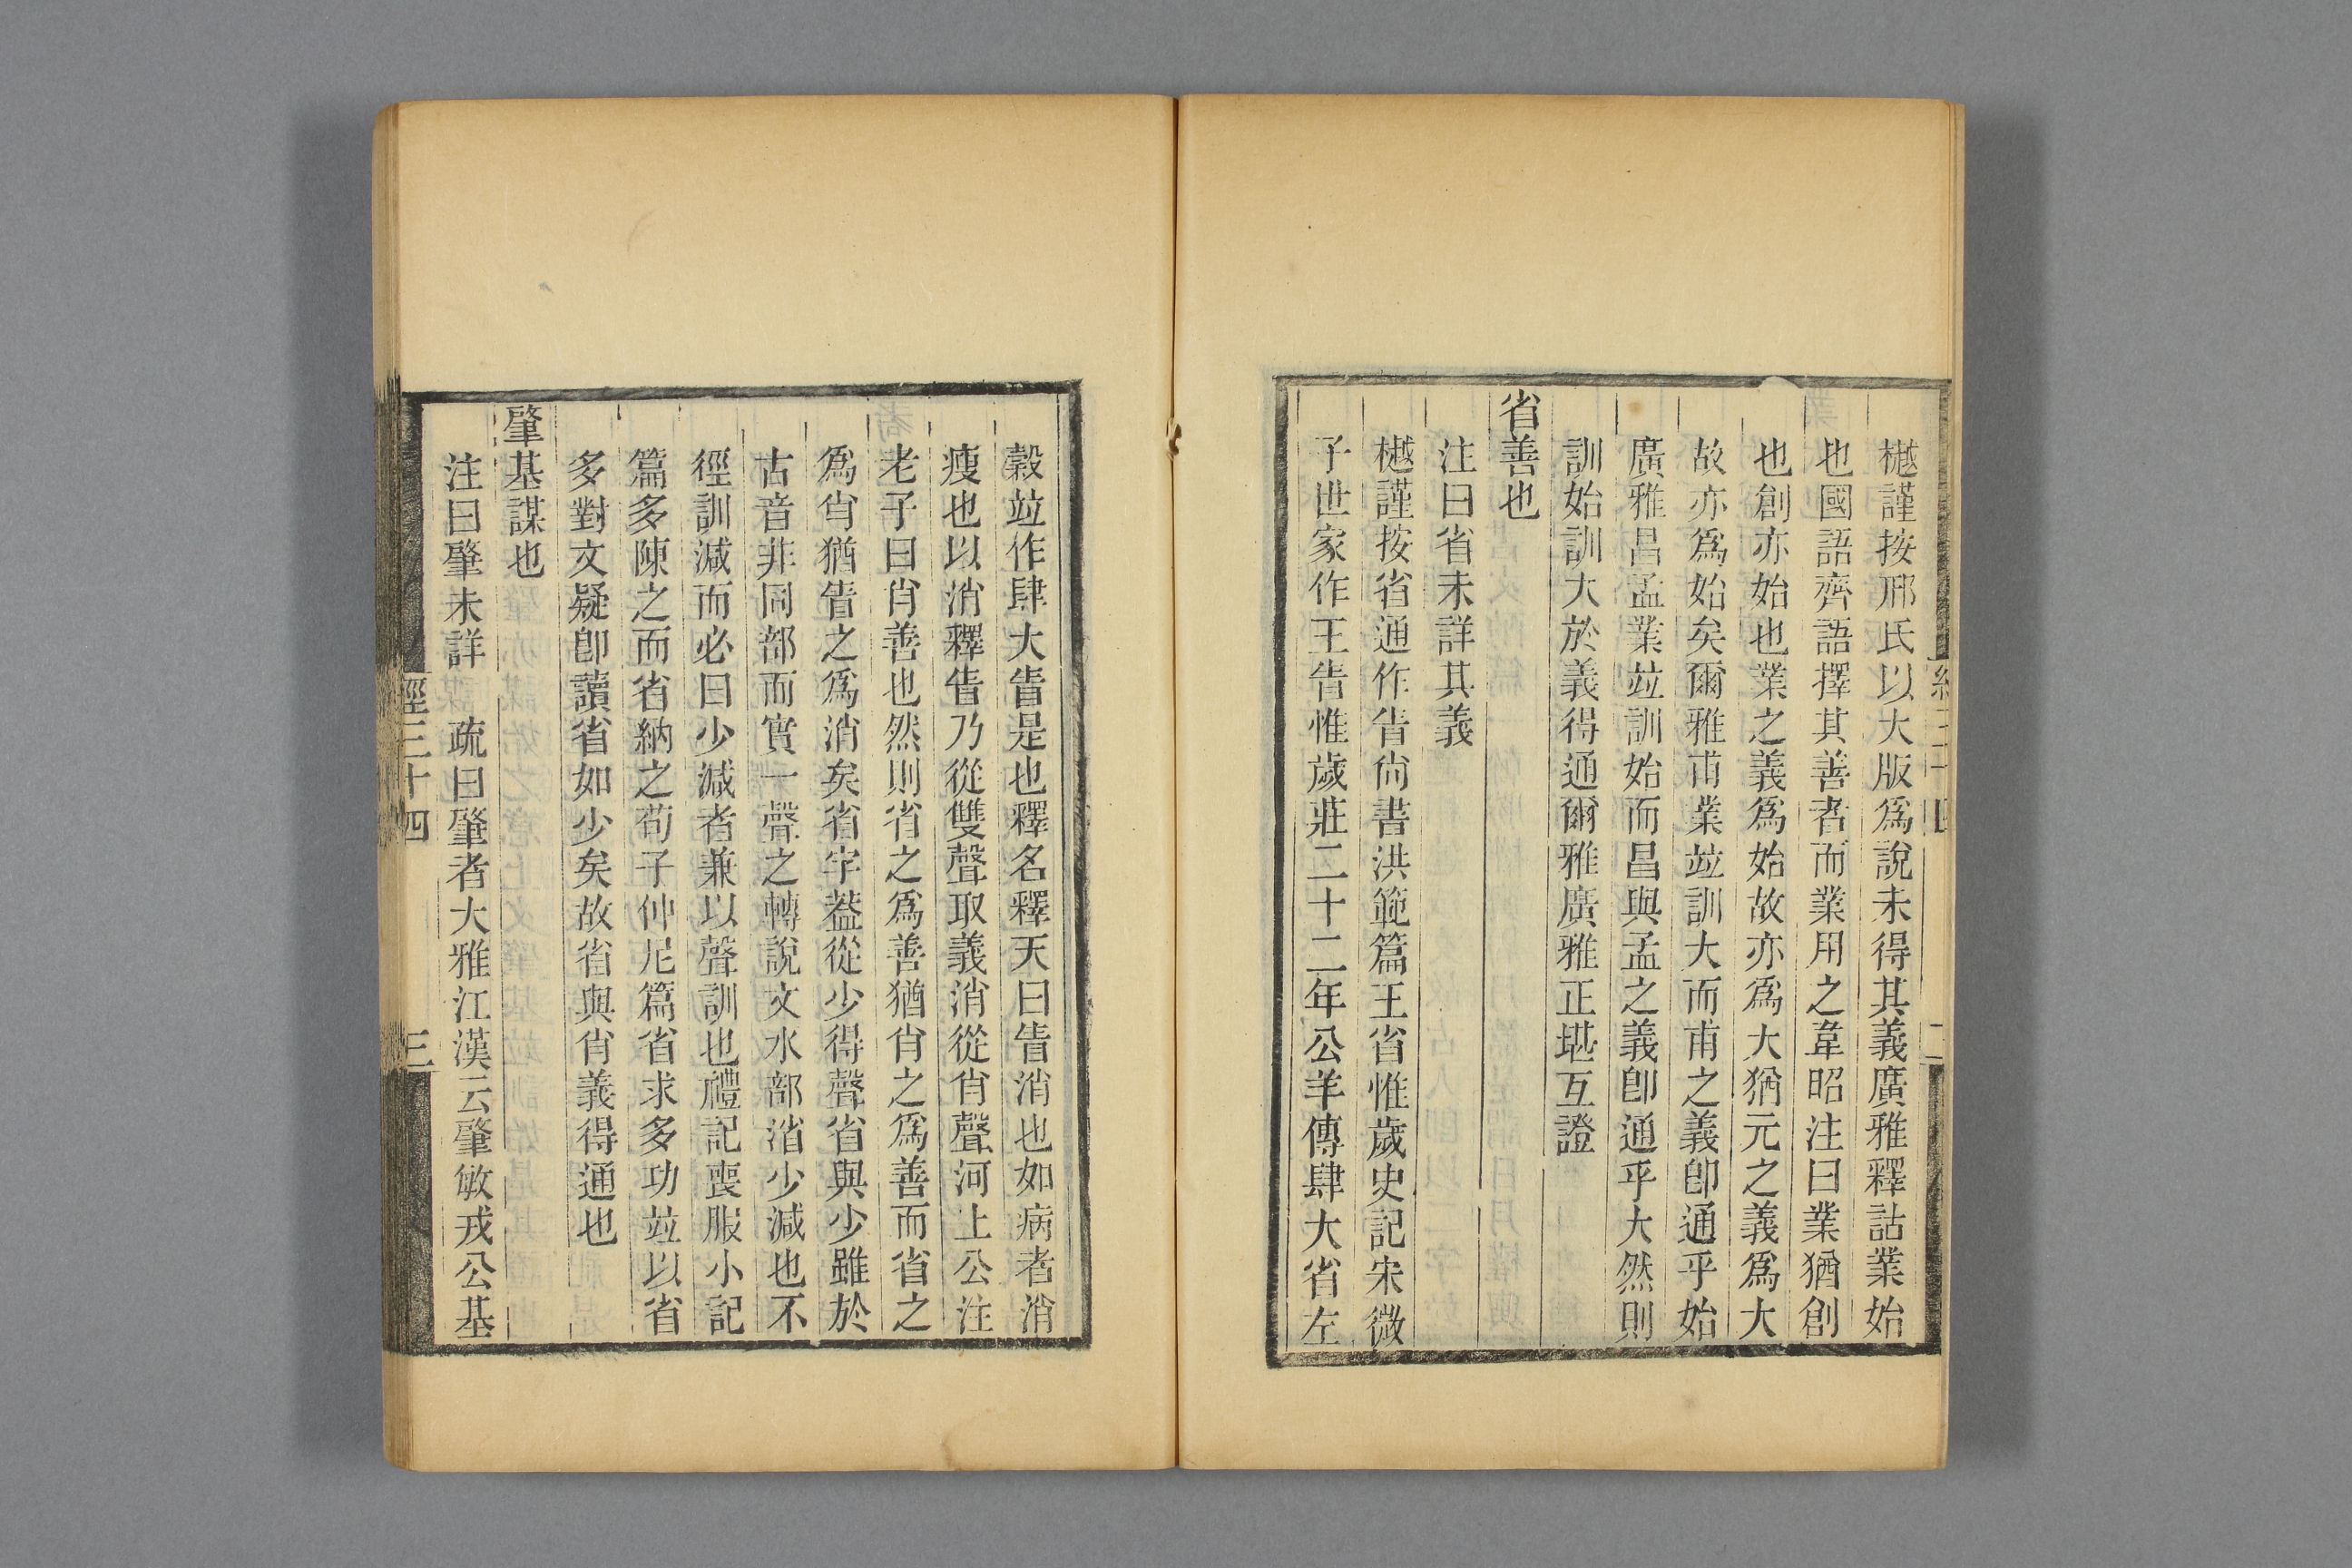 樾謹按邢氏以大版爲說未得其義廣雅釋詁業始
也國語齊語擇其善者而業用之韋昭注曰業猶創
也創亦始也業之義爲始故亦爲大猶元之義爲大
故亦爲始矣爾雅甫業竝訓大而甫之義卽通乎始
廣雅昌孟業竝訓始而昌與孟之義卽通乎大然則
訓始訓大於義得通爾雅廣雅正堪互證
省善也
注曰省未詳其義
樾謹按省通作眚尙書洪範篇王省惟歲史記宋微
子世家作王眚惟歲莊二十二年公羊傳肆大省左
穀竝作肆大眚是也釋名釋天曰眚消也如病者消
瘦也以消釋眚乃從雙聲取義消從肖聲河上公注
老子曰肖善也然則省之爲善猶肖之爲善而省之
爲肖猶眚之爲消矣省字葢從少得聲省與少雖於
古音非同部而實一聲之轉說文水部渻少減也不
徑訓減而必曰少減者兼以聲訓也禮記喪服小記
篇多陳之而省納之荀子仲尼篇省求多功竝以省
多對文疑卽讀省如少矣故省與肖義得通也
肇基謀也
注曰肇未詳　疏曰肇者大雅江漢云肇敏戎公基
經三十四　三